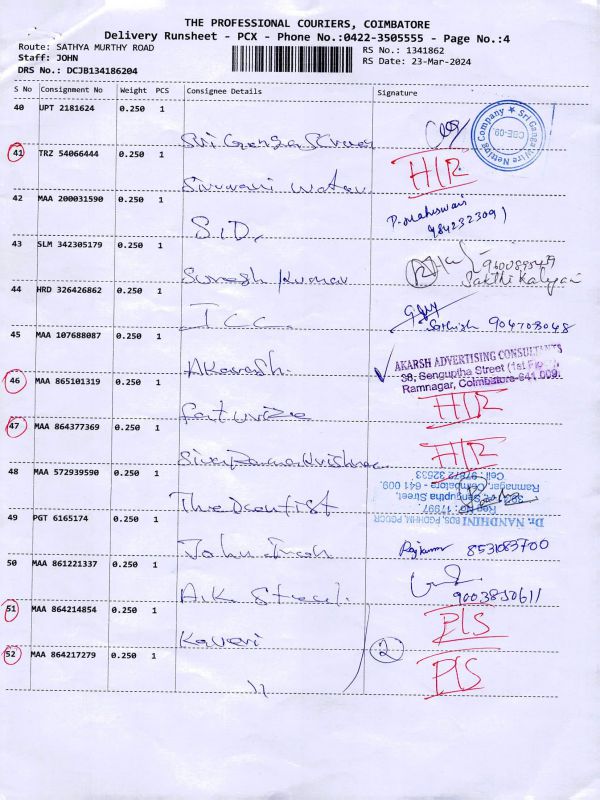 THE PROFESSIONAL COURIERS, COIMBATORE
Delivery Runsheet - PCX - Phone No.:0422-3505555 - Page No.:4
Route: SATHYA MURTHY ROAD
RS No.: 1341862
Staff: JOHN
RS Date: 23-Mar-2024
DRS No.: DCJB134186204
S No Consignment No Weight PCS Consignee Details Signature
40 UPT 2181624 0.250 1
Sri Ganga Wire Netting Company ★
CBE-09
41 TRZ 54066444 0.250 1 H/R
Water
42 MAA 200031590 0.250 1
S.I.D.
P. Maheswari
9842323091
43 SLM 342305179 0.250 1
Suresh Kumar
Sakthi Kalyani
44 HRD 326426862 0.250 1
I C C.
Sathish 904708048
45 MAA 107688087 0.250 1
Akarash.
AKARSH ADVERTISING CONSULTANTS
38, Senguptha Street (1st Floor),
Ramnagar, Coimbatore-641 009.
46 MAA 865101319 0.250 1 H/R
47 MAA 864377369 0.250 1 H/R
Siva Rama Krishna
48 MAA 572939590 0.250 1
The Dentist
Dr. NANDHINI BDS, PGDHM, PGDCR
Reg No : 17997
Senguptha Street,
Ramnagar, Coimbatore - 641 009.
Cell: 97872 32533
49 PGT 6165174 0.250 1
John
Rajkumar 8531083700
50 MAA 861221337 0.250 1
A.K Steel.
9003850611
51 MAA 864214854 0.250 1 P/S
Kaveri
2
52 MAA 864217279 0.250 1 P/S